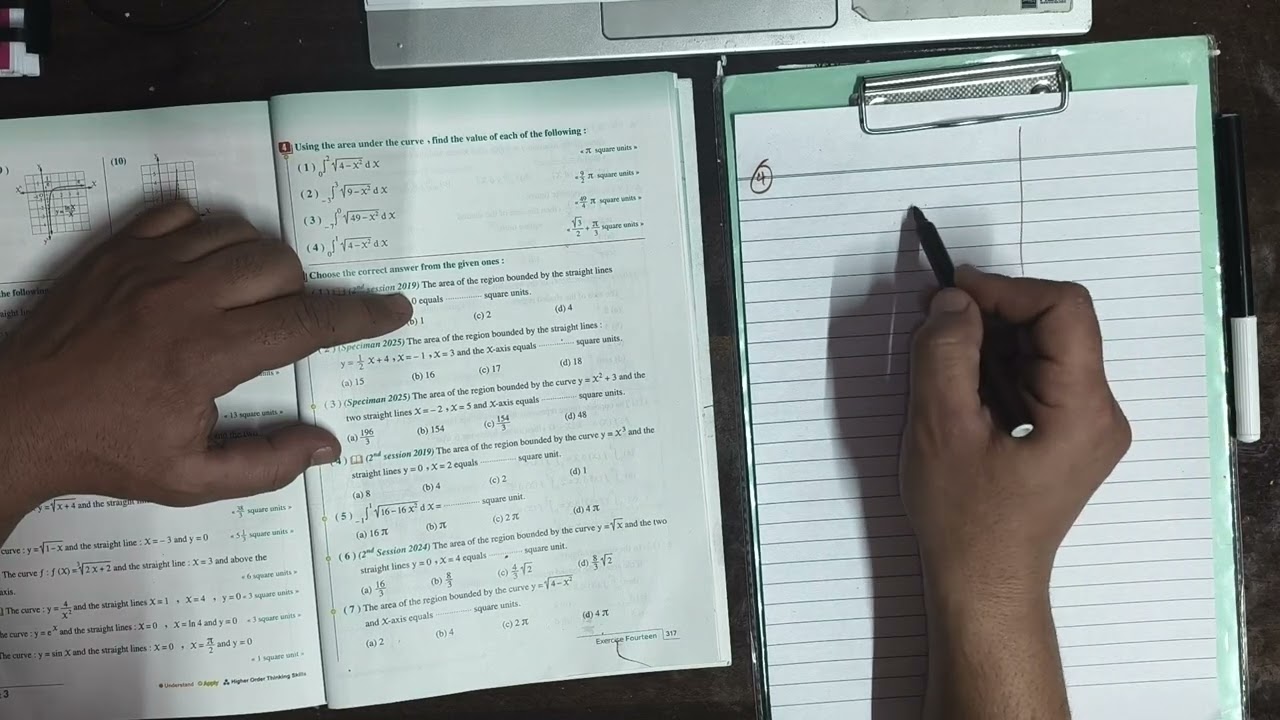 (10)
4 Using the area under the curve , find the value of each of the following :
(1) ₀∫² √4−x² dX « π square units »
(2) ₋₃∫³ √9−x² dX « 9/2 π square units »
(3) ₋₇∫⁰ √49−x² dX « 49/4 π square units »
(4) ₀∫¹ √4−x² dX « √3/2 + π/3 square units »
Choose the correct answer from the given ones :
(2nd session 2019) The area of the region bounded by the straight lines
0 equals ............ square units.
(b) 1 (c) 2 (d) 4
(Speciman 2025) The area of the region bounded by the straight lines :
y = 1/2 X + 4 , X = − 1 , X = 3 and the X-axis equals ............ square units.
(a) 15 (b) 16 (c) 17 (d) 18
(3) (Speciman 2025) The area of the region bounded by the curve y = X² + 3 and the
two straight lines X = − 2 , X = 5 and X-axis equals ............ square units.
(a) 196/3 (b) 154 (c) 154/3 (d) 48
4) (2nd session 2019) The area of the region bounded by the curve y = X³ and the
straight lines y = 0 , X = 2 equals ............ square unit.
(a) 8 (b) 4 (c) 2 (d) 1
(5) ₋₁∫¹ √16−16 X² dX = ............ square unit.
(a) 16 π (b) π (c) 2 π (d) 4 π
(6) (2nd Session 2024) The area of the region bounded by the curve y = √X and the two
straight lines y = 0 , X = 4 equals ............ square unit.
(a) 16/3 (b) 8/3 (c) 4/3 √2 (d) 8/3 √2
(7) The area of the region bounded by the curve y = √4−X²
and X-axis equals ............ square units.
(a) 2 (b) 4 (c) 2 π (d) 4 π
Exercise Fourteen 317
« 13 square units »
y = √X+4 and the straight
curve : y = √1−X and the straight line : X = − 3 and y = 0 « 5 1/3 square units »
The curve f : f (X) = ³√2 X + 2 and the straight line : X = 3 and above the
axis. « 6 square units »
The curve : y = 4/X² and the straight lines X = 1 , X = 4 , y = 0 « 3 square units »
he curve : y = eˣ and the straight lines : X = 0 , X = ln 4 and y = 0 « 3 square units »
The curve : y = sin X and the straight lines : X = 0 , X = π/2 and y = 0
« 1 square unit »
Understand Apply Higher Order Thinking Skills
4